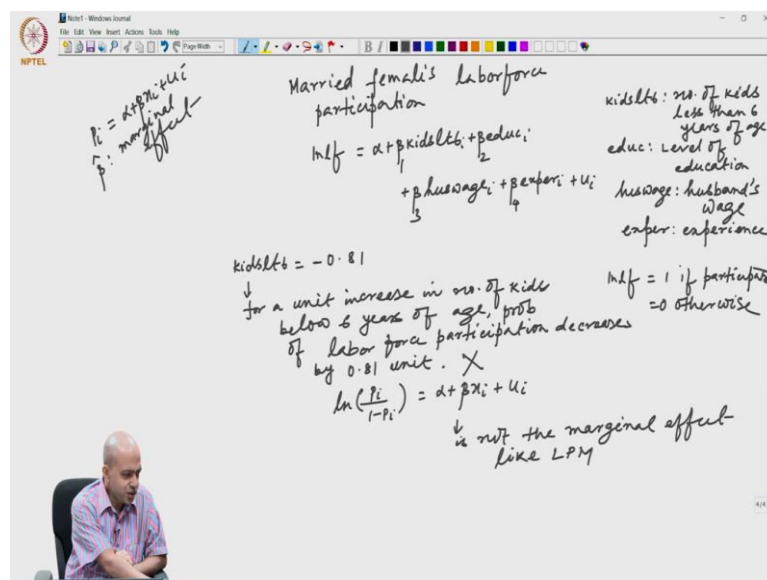 Note1 - Windows Journal
File Edit View Insert Actions Tools Help
Page Width
NPTEL
Pi = α+βxi+ui
β̂: marginal
effect
Married female's laborforce
participation
inlf = α+β1kidslt6i+β2educi
+β3huswagei+β4experi+ui
kidslt6: no. of kids
less than 6
years of age
educ: Level of
education
huswage: husband's
wage
exper: experience
inlf = 1 if participate
=0 otherwise
kidslt6 = -0.81
↓
for a unit increase in no. of kids
below 6 years of age, prob
of labor force participation decreases
by 0.81 unit. X
ln(Pi/1-Pi) = α+βxi+ui
↓
is not the marginal effect
like LPM
4/4